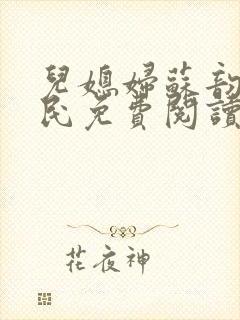 兒媳婦蘇韵
民免費閱讀
花夜神